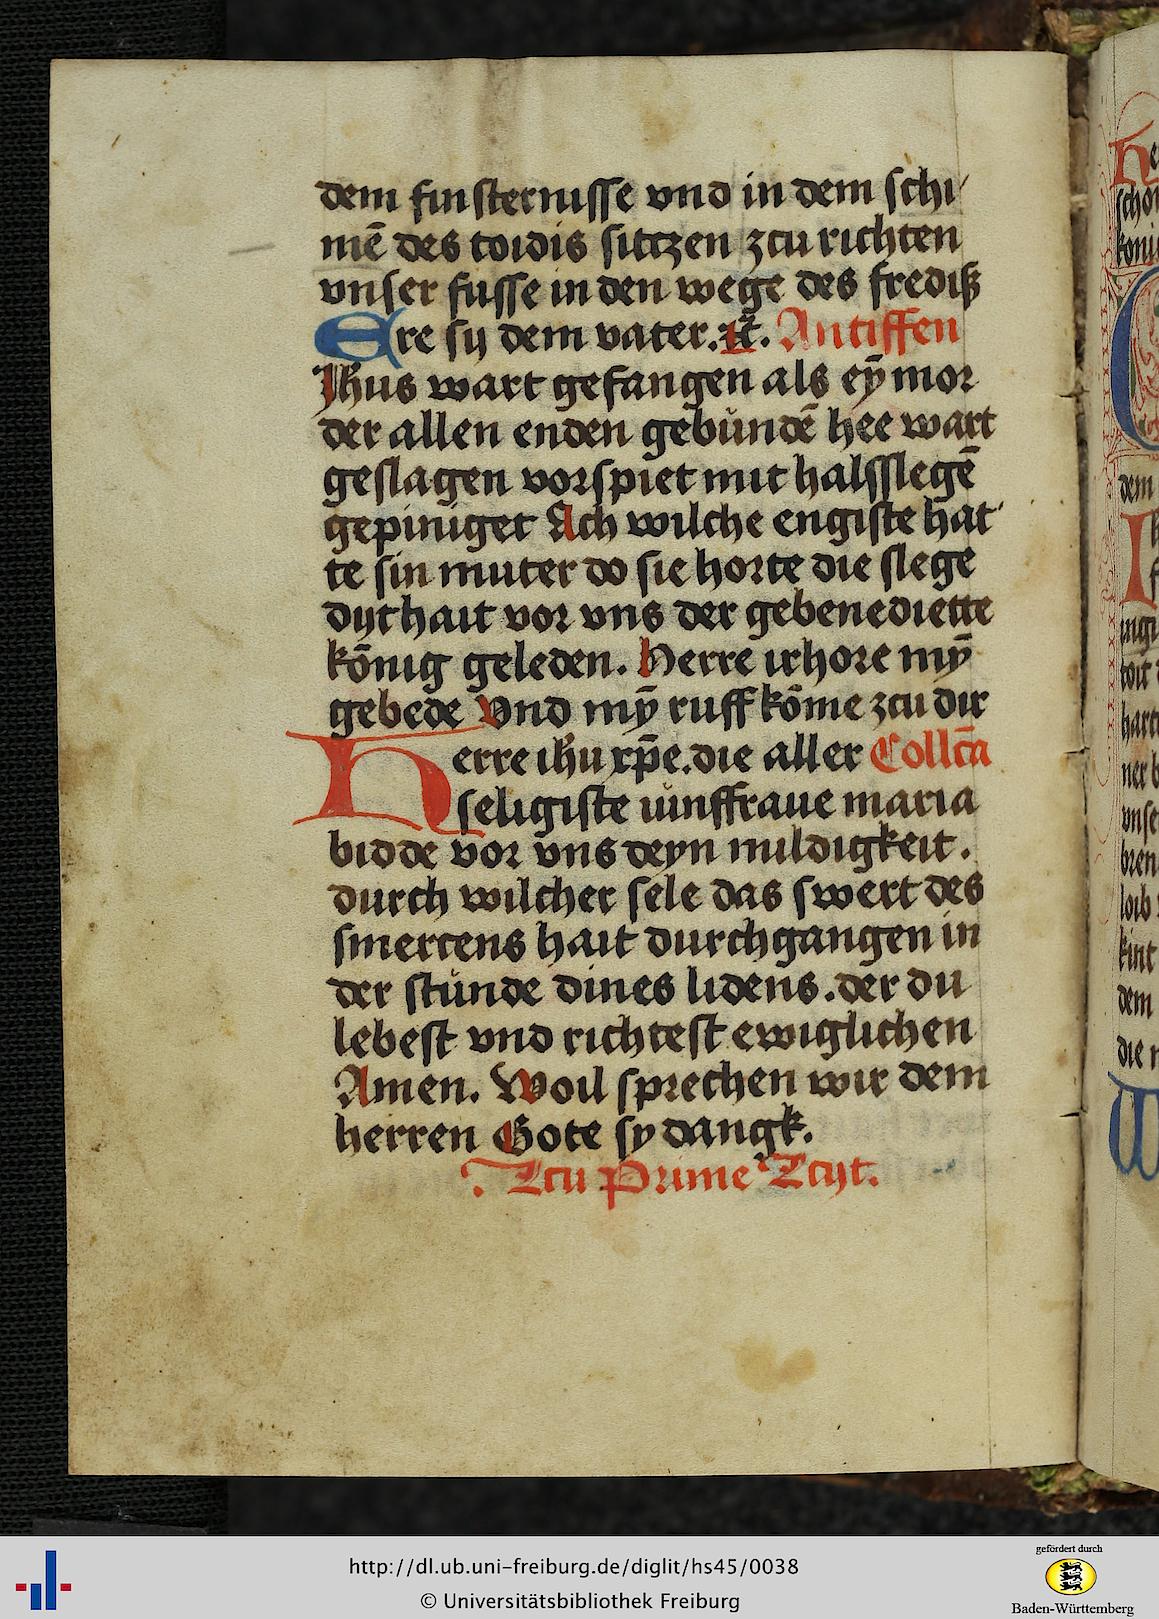 dem finsternisse vnd in dem schi
mē des toidis sitczen zcu richten
vnser fusse in den wege des frediß
Ere sy dem vater. Antiffen
Jhus wart gefangen als eȳ mor
der allen enden gebūndē hee wart
geslagen vorspiet mit halsslegē
gepiniget Ach wilche engiste hat
te sin muter do sie horte die slege
dyt hait vor vns der gebenediette
kōnig geleden. Herre irhore mȳ
gebede Vnd mȳ ruff kōme zcu dir
Herre ihu xp̄e. die aller Collc̄a
seligiste iūnffraue maria
bidde vor vns deyn mildigkeit.
durch wilcher sele das swert des
smerczens hait durchgangen in
der stūnde dines lidens. der du
lebest vnd richtest ewiglichen
Amen. Woil sprechen wir dem
herren Gote sy dangk.
Zcu Prime Zcyt.
http://dl.ub.uni-freiburg.de/diglit/hs45/0038
© Universitätsbibliothek Freiburg
gefördert durch
Baden-Württemberg